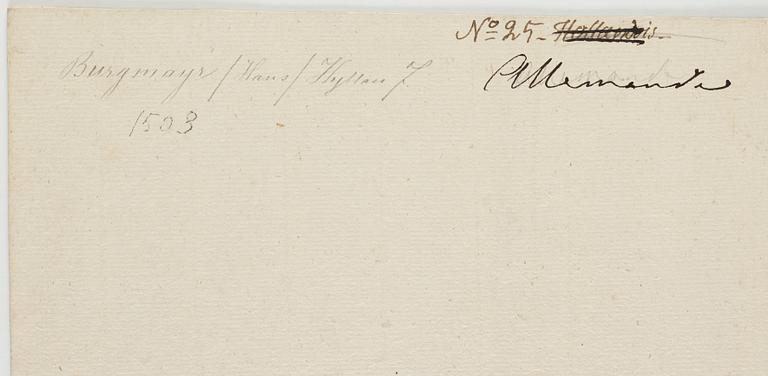 No 25. Hollandois.
Allemande
Burgmayr /Hans/ Hyllen 7.
1503